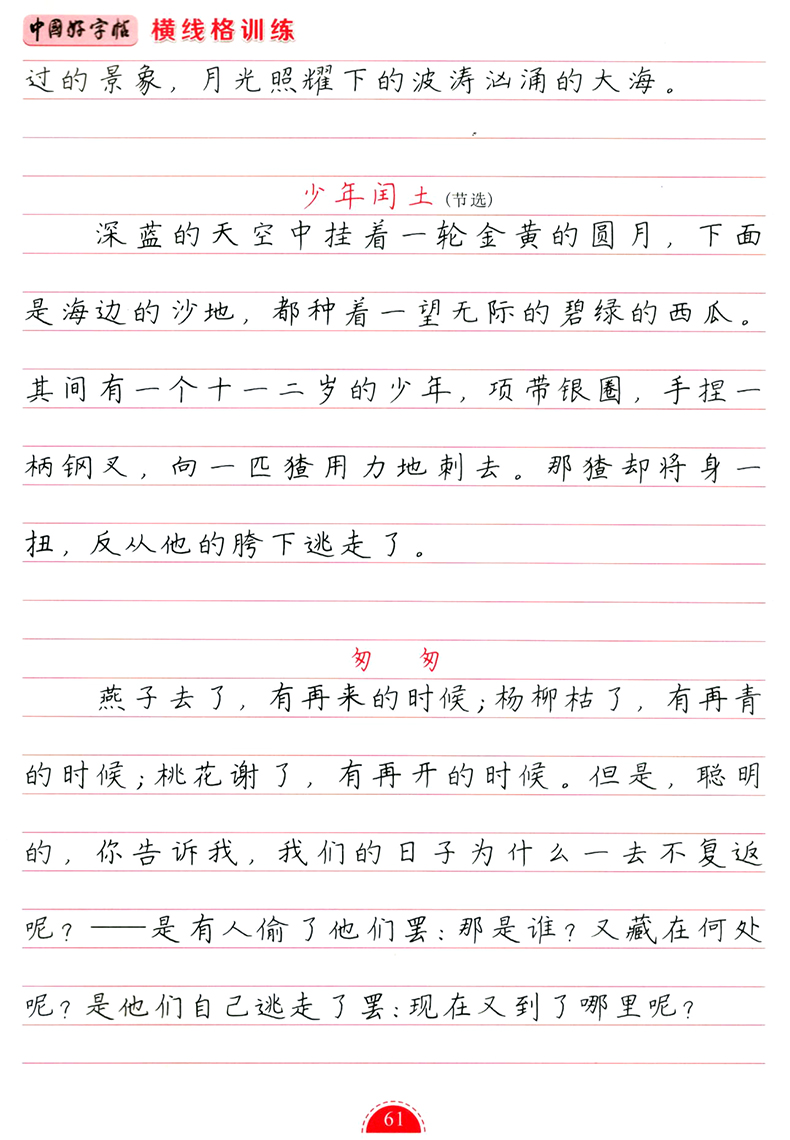 中国好字帖 横线格训练
过的景象，月光照耀下的波涛汹涌的大海。
少年闰土(节选)
深蓝的天空中挂着一轮金黄的圆月，下面
是海边的沙地，都种着一望无际的碧绿的西瓜。
其间有一个十一二岁的少年，项带银圈，手捏一
柄钢叉，向一匹猹用力地刺去。那猹却将身一
扭，反从他的胯下逃走了。
匆 匆
燕子去了，有再来的时候；杨柳枯了，有再青
的时候；桃花谢了，有再开的时候。但是，聪明
的，你告诉我，我们的日子为什么一去不复返
呢？——是有人偷了他们罢：那是谁？又藏在何处
呢？是他们自己逃走了罢：现在又到了哪里呢？
61